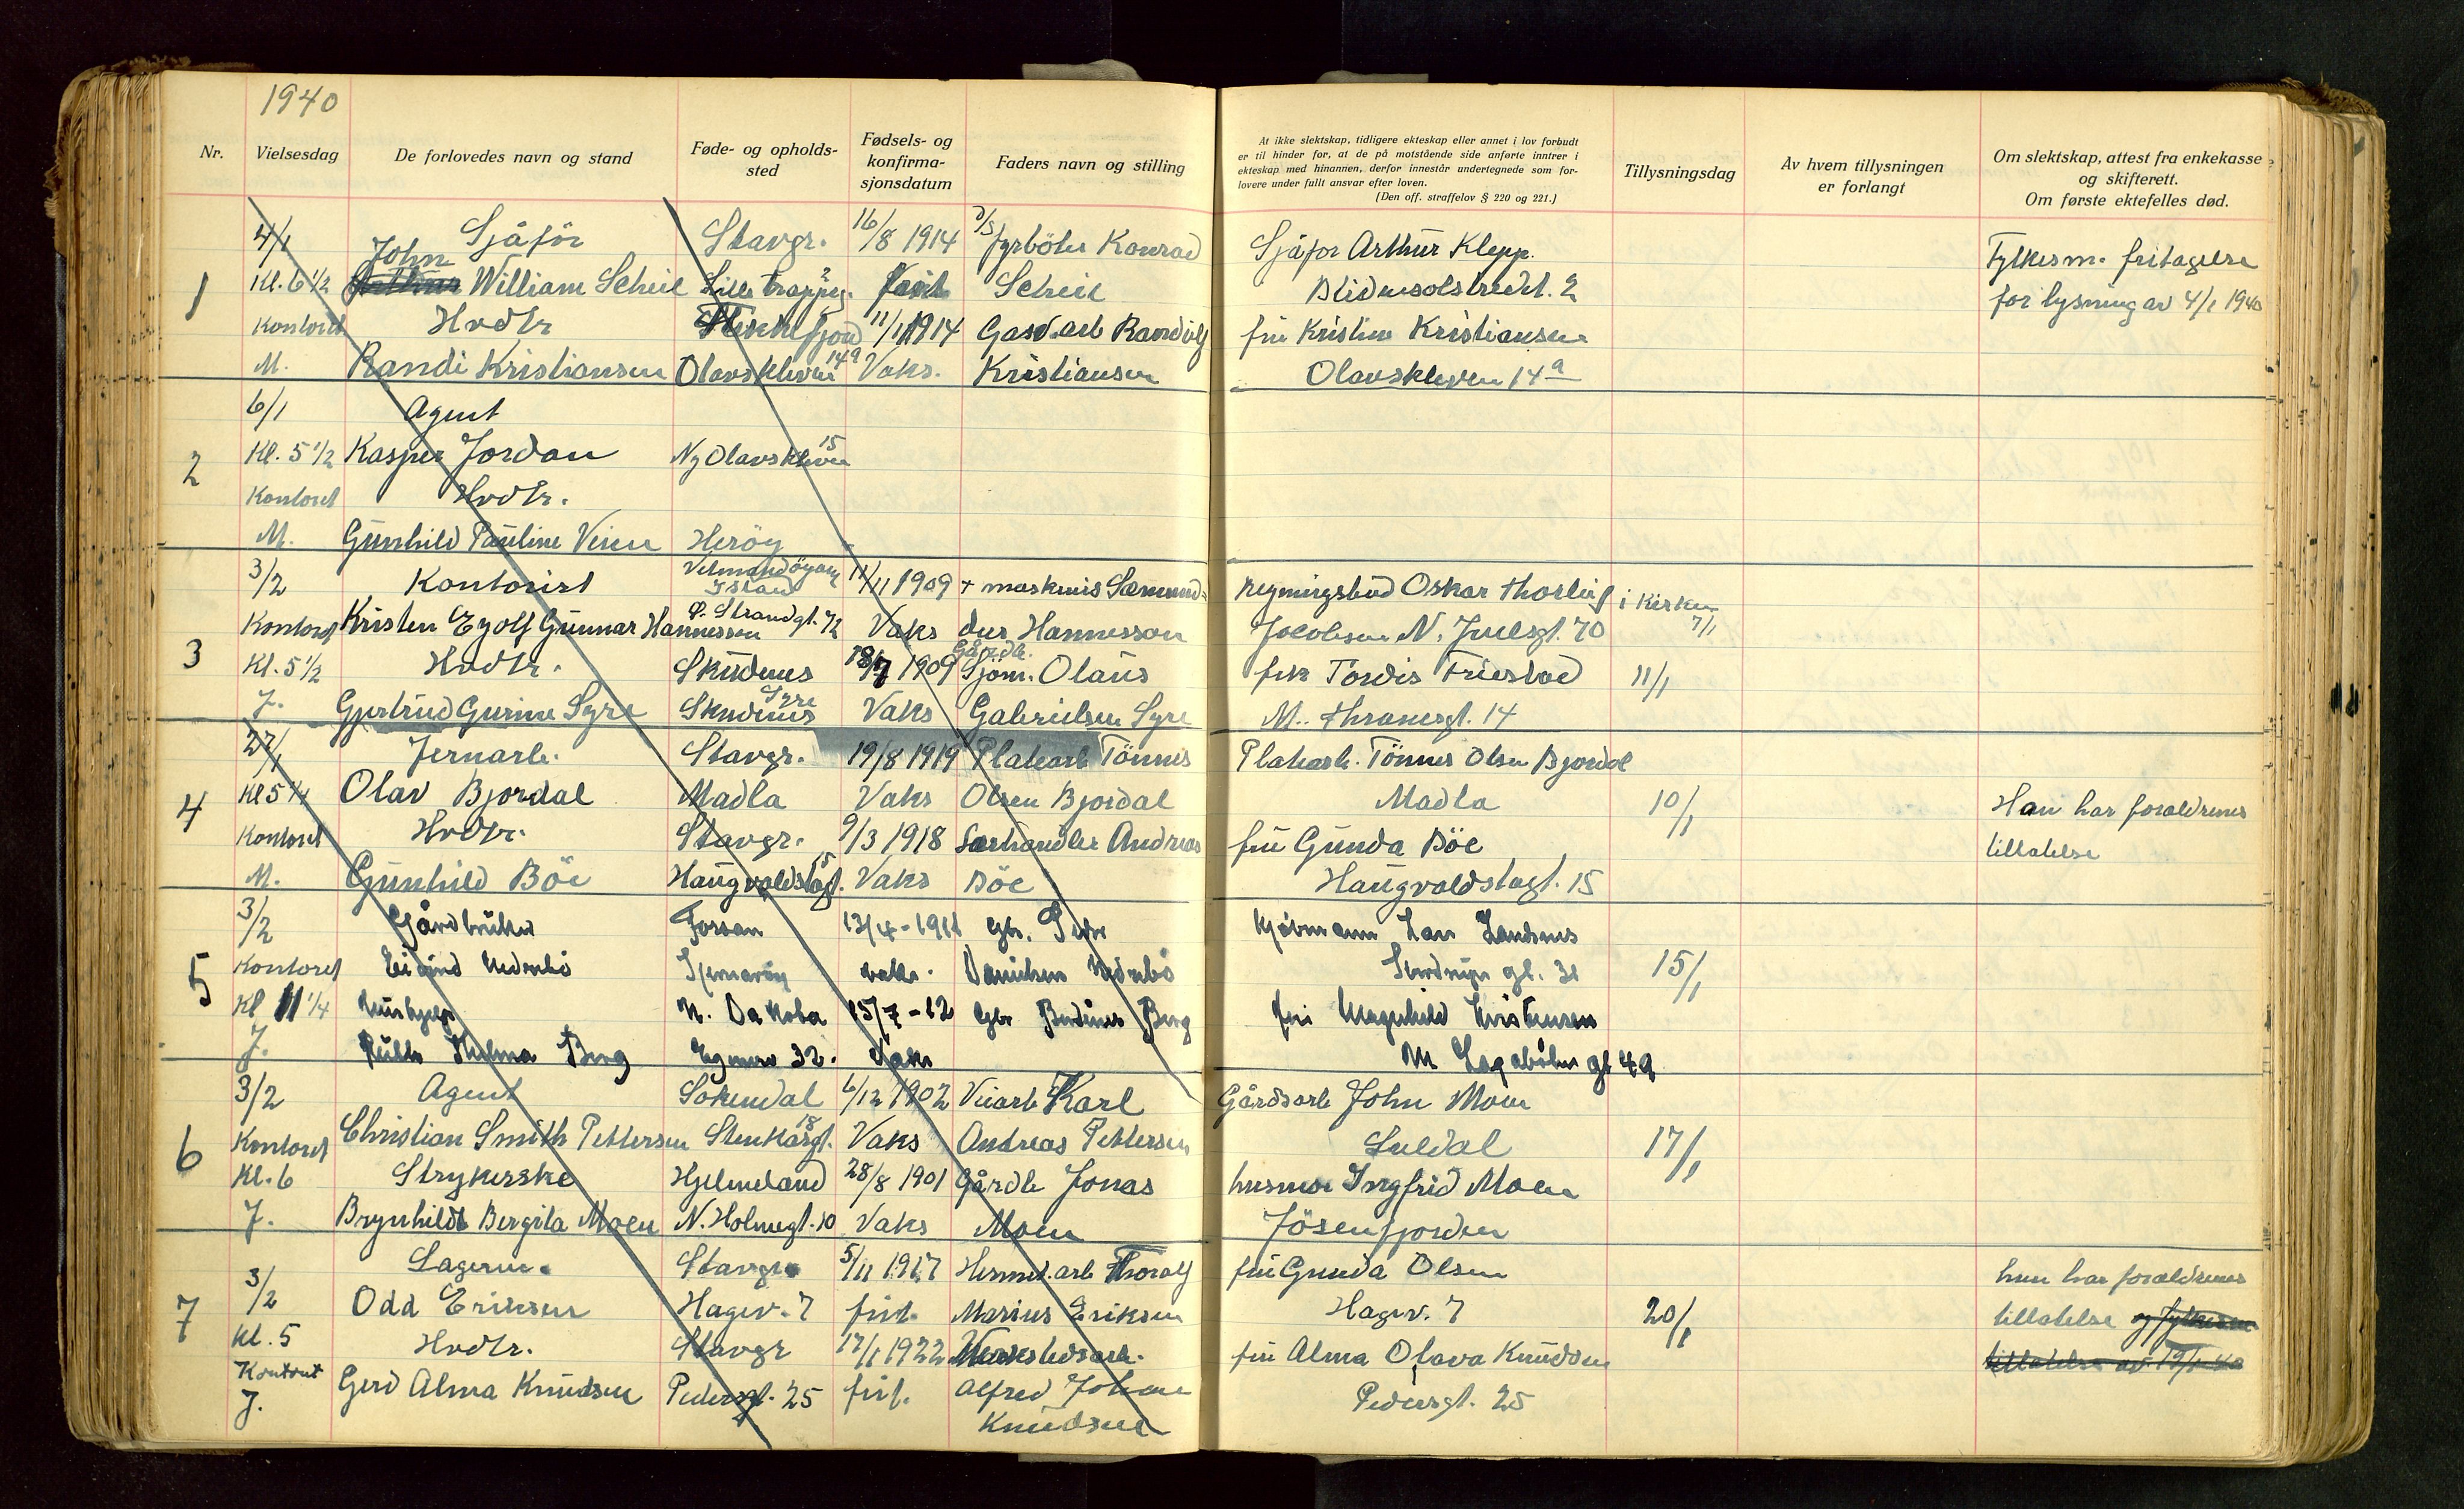 1940
Nr.
Vielsesdag
De forlovedes navn og stand
Føde- og opholds-
sted
Fødsels- og
konfirma-
sjonsdatum
Faders navn og stilling
At ikke slektskap, tidligere ekteskap eller annet i lov forbudt
er til hinder for, at de på motstående side anførte inntrer i
ekteskap med hinannen, derfor innestår undertegnede som for-
lovere under fullt ansvar efter loven.
(Den off. straffelov § 220 og 221.)
Tillysningsdag
Av hvem tillysningen
er forlangt
Om slektskap, attest fra enkekasse
og skifterett.
Om første ektefelles død.
1
4/1 Sjåfør Stavgr. 16/8 1914 fyrbøter Konrad
Kl. 6 1/2 John William Scheie Scheie
Kontoret Hvdtr 11/1 1914 Gasv.arb Randulf
M. Randi Kristiansen Olavskleven 14a Vaks. Kristiansen
Sjåfor Arthur Klepp.
Blidensolstredet. 2
fru Kristine Kristiansen
Olavskleven 14a
Fylkesm. fritagelse
for lysning av 4/1 1940
2
6/1 Agent
Kl. 5 1/2 Kasper Jordan Ny Olavskleven 15
Kontoret Hvdtr.
M. Gunhild Pauline Veien Herøy
3
3/2 Kontorist Island 11/11 1909 + maskinis Sæmund=
Kontoret Kristen Eyolf Gunnar Hannesson Ø. Strandgt. 72 Vaks dur Hannesson
Kl. 5 1/2 Hvdtr. Skudenes 18/7 1909 Gårdb. Sjøm. Olaus
J. Gjertrud Gurine Syre Syre Skudenes Vaks Gabrielsen Syre
Regningsbud Oskar Thorleif i Kirken
Jacobsen N. Juelsgt. 70 7/1
frk Tordis Friestad 11/1
M. Thranesgt. 14
4
27/1 Jernarb. Stavgr. 19/8 1919 Platearb Tönnes
Kl 5 1/4 Olav Bjordal Madla Vaks Olsen Bjordal
Kontoret Hvdtr. Stavgr. 9/3 1918 Andreas
M. Gunhild Böe Haugvaldstagt. 15 Vaks Böe
Platearb. Tönnes Olsen Bjordal
Madla 10/1
fru Gunda Böe
Haugvaldstagt. 15
Han har foreldrenes
tillatelse
5
3/2 Gårdbruker Forsan 13/4-1911 Gbr. Peder
Kontoret Eivind Nedrebö vaks. Danielsen Nedrebö
Kl 11 1/4 Hushjelp N. Dakota 15/7-12 Gbr Berg
J. Hilma Berg Egenes 32. Vaks
Kjøbmann Lars Landsnes
gt. 31 15/1
fru Magnhild Kristensen
M gt 49
6
3/2 Agent Sokendal 6/12 1902 Veiarb Karl
Kontoret Christian Smith Pettersen Stenkargt. 18 Vaks Andreas Pettersen
Kl. 6 Strykerske Hjelmeland 28/8 1901 Gårdb Jonas
J. Brynhild Bergita Moen N. Holmegt. 10 Vaks Moen
Gårdsarb John Moen
Suldal 17/1
husmor Ingfrid Moen
Jösenfjorden
7
3/2 Lagerm. Stavgr. 5/11 1917 Hermet.arb Thoralf
Odd Eriksen Hagev. 7 frit. Marius Eriksen
Kl. 5 Hvdtr. Stavgr 17/1 1922 Verkstedsarb.
Kontoret Gerd Alma Knudsen Pedersgt. 25 frit. Alfred Johan
J. Knudsen
fru Gunda Olsen
Hagev. 7 20/1
fru Alma Olava Knudsen
Pedersgt. 25
hun har foreldrenes
tillatelse og fylkesm
tillatelse av 19/1 40